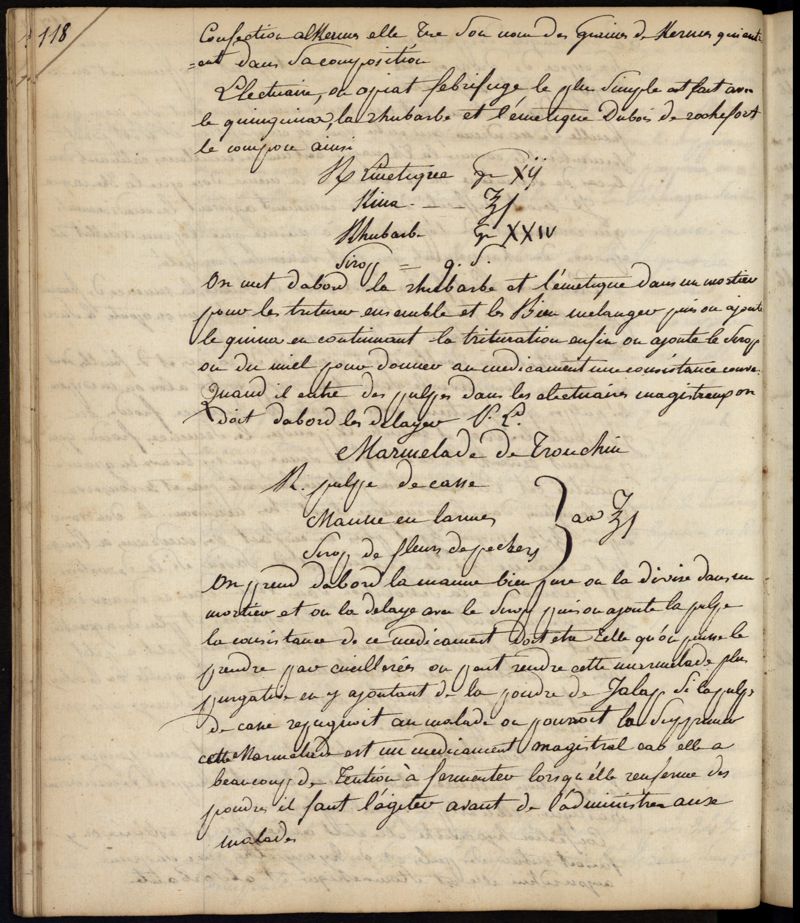 118
Confection alKermes elle tire Son nom des Graines de Kermes qui entr
=ent dans Sa composition
L'Electuaire, ou opiat febrifuge le plus Simple est fait avec
le quinquina, la rhubarbe et l'émetique Dubois de rochefort
le compose ainsi
R Emetique gr XIJ
Kina - - ℥j
Rhubarbe gr XXIV
Sirop = q. S.
On met d'abord la rhubarbe et l'émetique dans un mortier
pour les triturer ensemble et les Bien melanger puis on ajoute
le quina en continuant la trituration enfin on ajoute le Sirop
ou du miel pour donner au medicament une consistance conve.
Quand il entre des pulpes dans les electuaires magistraux on
doit d'abord les delayer
Marmelade de Tronchin
R. pulpe de casse
Manne en larmes } aa ℥j
Sirop de fleurs de pechers
On prend d'abord la manne bien pure on la divise dans un
mortier et on la delaye avec le Sirop puis on ajoute la pulpe
la consistance de ce medicament doit etre telle qu'on puisse le
prendre par cueillerées on peut rendre cette marmelade plus
purgative en y ajoutant de la poudre de Jalap Si la pulpe
de casse repugnoit au malade on pourroit la Supprimer
cette Marmelade est un medicament magistral car elle a
beaucoup de tention à fermenter lorsqu'elle renferme des
poudres il faut l'agiter avant de l'administrer aux
malades